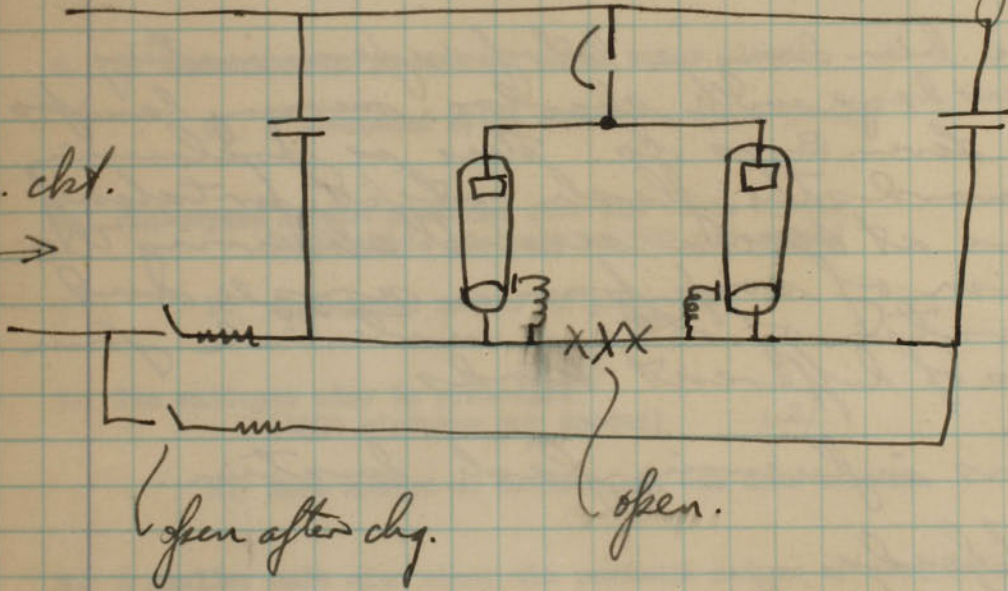 . ckt.
XXX
open after chg.
open.